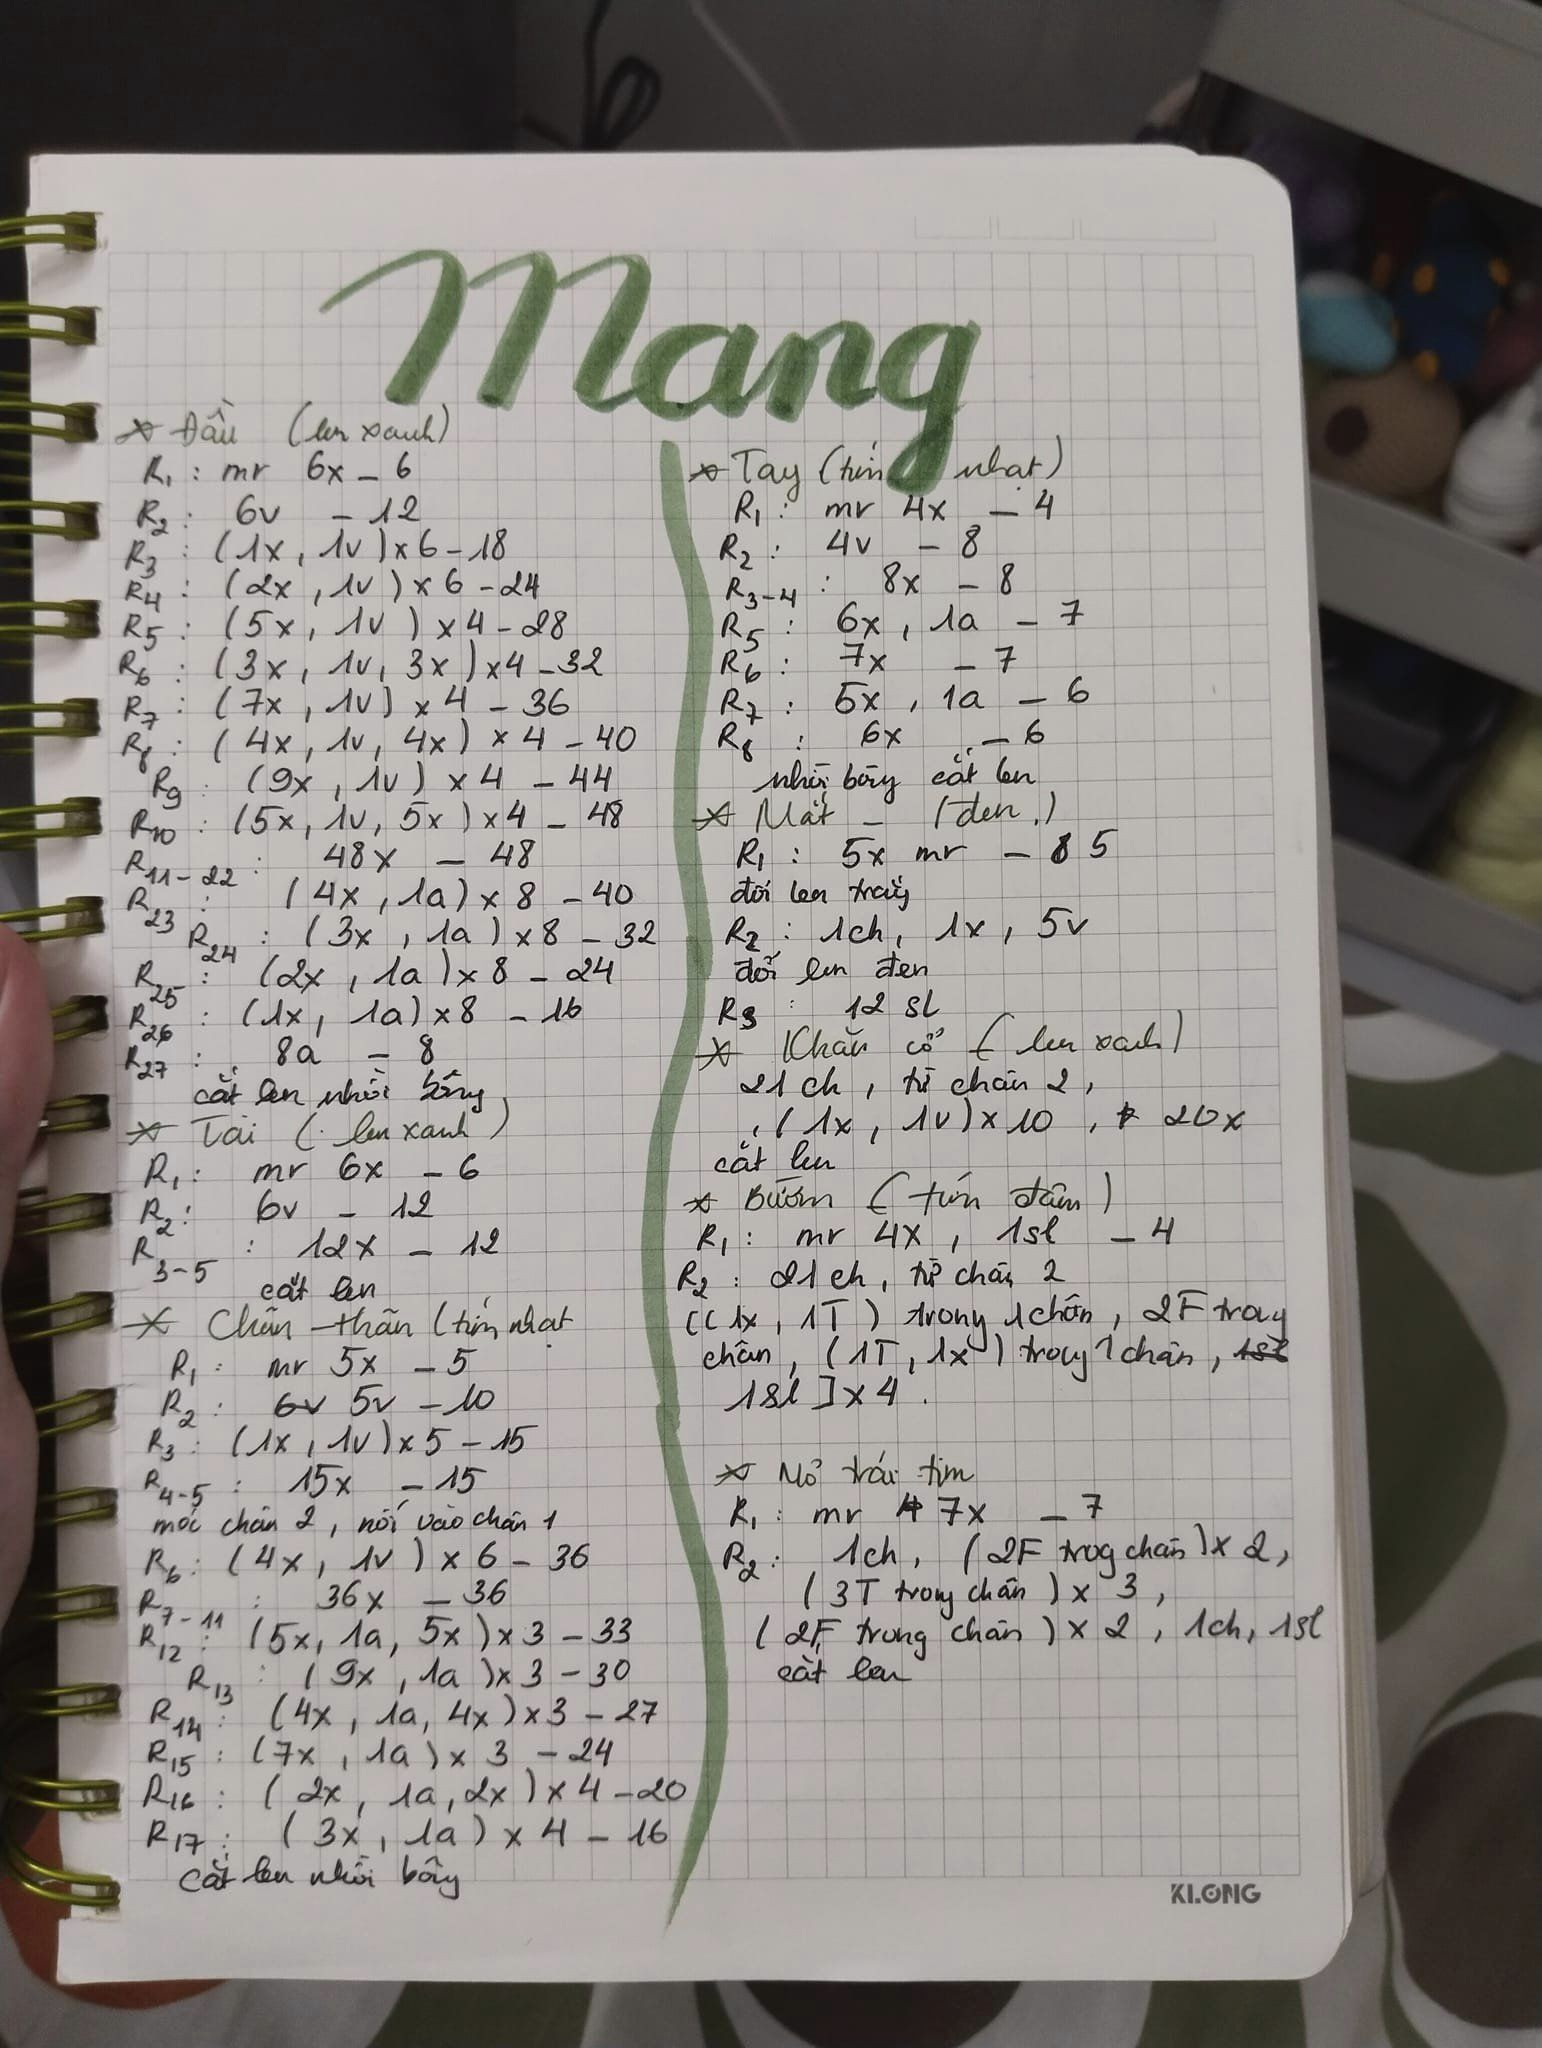 Mang
* Đầu (len xanh)
R1 : mr 6x – 6
R2 : 6v – 12
R3 : (1x, 1v) x 6 – 18
R4 : (2x, 1v) x 6 – 24
R5 : (5x, 1v) x 4 – 28
R6 : (3x, 1v, 3x) x 4 – 32
R7 : (7x, 1v) x 4 – 36
R8 : (4x, 1v, 4x) x 4 – 40
R9 : (9x, 1v) x 4 – 44
R10 : (5x, 1v, 5x) x 4 – 48
R11–22 : 48x – 48
R23 : (4x, 1a) x 8 – 40
R24 : (3x, 1a) x 8 – 32
R25 : (2x, 1a) x 8 – 24
R26 : (1x, 1a) x 8 – 16
R27 : 8a – 8
cắt len nhồi bông
* Tai (len xanh)
R1 : mr 6x – 6
R2 : 6v – 12
R3–5 : 12x – 12
cắt len
* Chân – thân (tím nhạt
R1 : mr 5x – 5
R2 : 6v 5v – 10
R3 : (1x, 1v) x 5 – 15
R4–5 : 15x – 15
móc chân 2, nối vào chân 1
R6 : (4x, 1v) x 6 – 36
R7–11 : 36x – 36
R12 : (5x, 1a, 5x) x 3 – 33
R13 : (9x, 1a) x 3 – 30
R14 : (4x, 1a, 4x) x 3 – 27
R15 : (7x, 1a) x 3 – 24
R16 : (2x, 1a, 2x) x 4 – 20
R17 : (3x, 1a) x 4 – 16
cắt len nhồi bông
* Tay (tím nhạt)
R1 : mr 4x – 4
R2 : 4v – 8
R3–4 : 8x – 8
R5 : 6x, 1a – 7
R6 : 7x – 7
R7 : 5x, 1a – 6
R8 : 6x – 6
nhồi bông cắt len
* Mắt – (đen)
R1 : 5x mr – 5
đổi len trắng
R2 : 1ch, 1x, 5v
đổi len đen
R3 : 12 sl
* Khăn cổ (len xanh)
21 ch, từ chân 2,
, (1x, 1v) x 10, 20x
cắt len
* Bướm (tím đậm)
R1 : mr 4x, 1sl – 4
R2 : 21ch, từ chân 2
[(1x, 1T) trong 1 chân, 2F trong
chân, (1T, 1x) trong 1 chân, 1sl
1sl] x 4.
* Mỏ trái tim
R1 : mr 7x – 7
R2 : 1ch, (2F trog chân) x 2,
(3T trong chân) x 3,
(2F trong chân) x 2, 1ch, 1sl
cắt len
KLONG